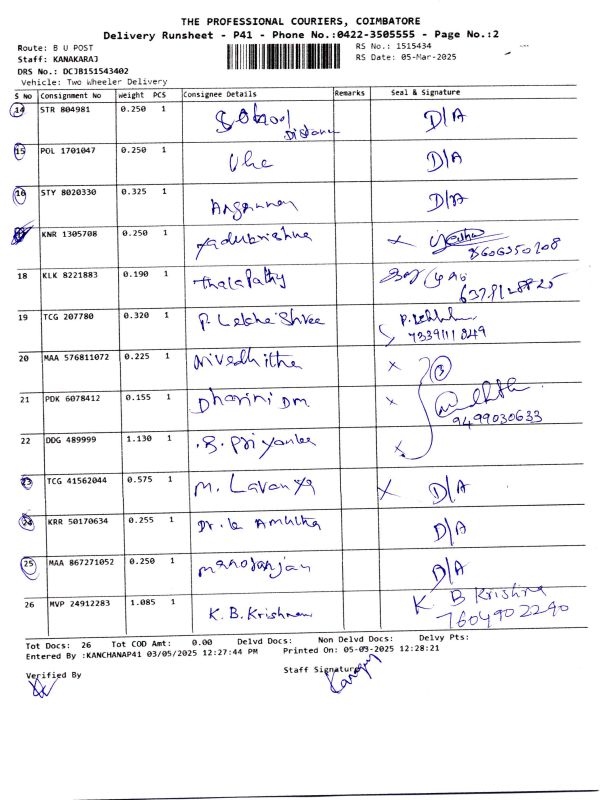 THE PROFESSIONAL COURIERS, COIMBATORE
Delivery Runsheet - P41 - Phone No.:0422-3505555 - Page No.:2
Route: B U POST RS No.: 1515434
Staff: KANAKARAJ RS Date: 05-Mar-2025
DRS No.: DCJB151543402
Vehicle: Two Wheeler Delivery
S No Consignment No Weight PCS Consignee Details Remarks Seal & Signature
14 STR 804981 0.250 1 School Distance D/A
15 POL 1701047 0.250 1 D/A
16 STY 8020330 0.325 1 D/A
KNR 1305708 0.250 1 Yadukrishna X 8606350208
18 KLK 8221883 0.190 1 Thalapathy
19 TCG 207780 0.320 1 P. Lekha Shree 7339111849
20 MAA 576811072 0.225 1 Nivedhitha X 3
21 PDK 6078412 0.155 1 Dharini DM X 9499030633
22 DDG 489999 1.130 1 B. Priyanka X
23 TCG 41562044 0.575 1 M. Lavanya X D/A
24 KRR 50170634 0.255 1 D/A
25 MAA 867271052 0.250 1 Manoranjan D/A
26 MVP 24912283 1.085 1 K.B.Krishnan K B Krishna 7604902290
Tot Docs: 26 Tot COD Amt: 0.00 Delvd Docs: Non Delvd Docs: Delvy Pts:
Entered By :KANCHANAP41 03/05/2025 12:27:44 PM Printed On: 05-03-2025 12:28:21
Verified By Staff Signature